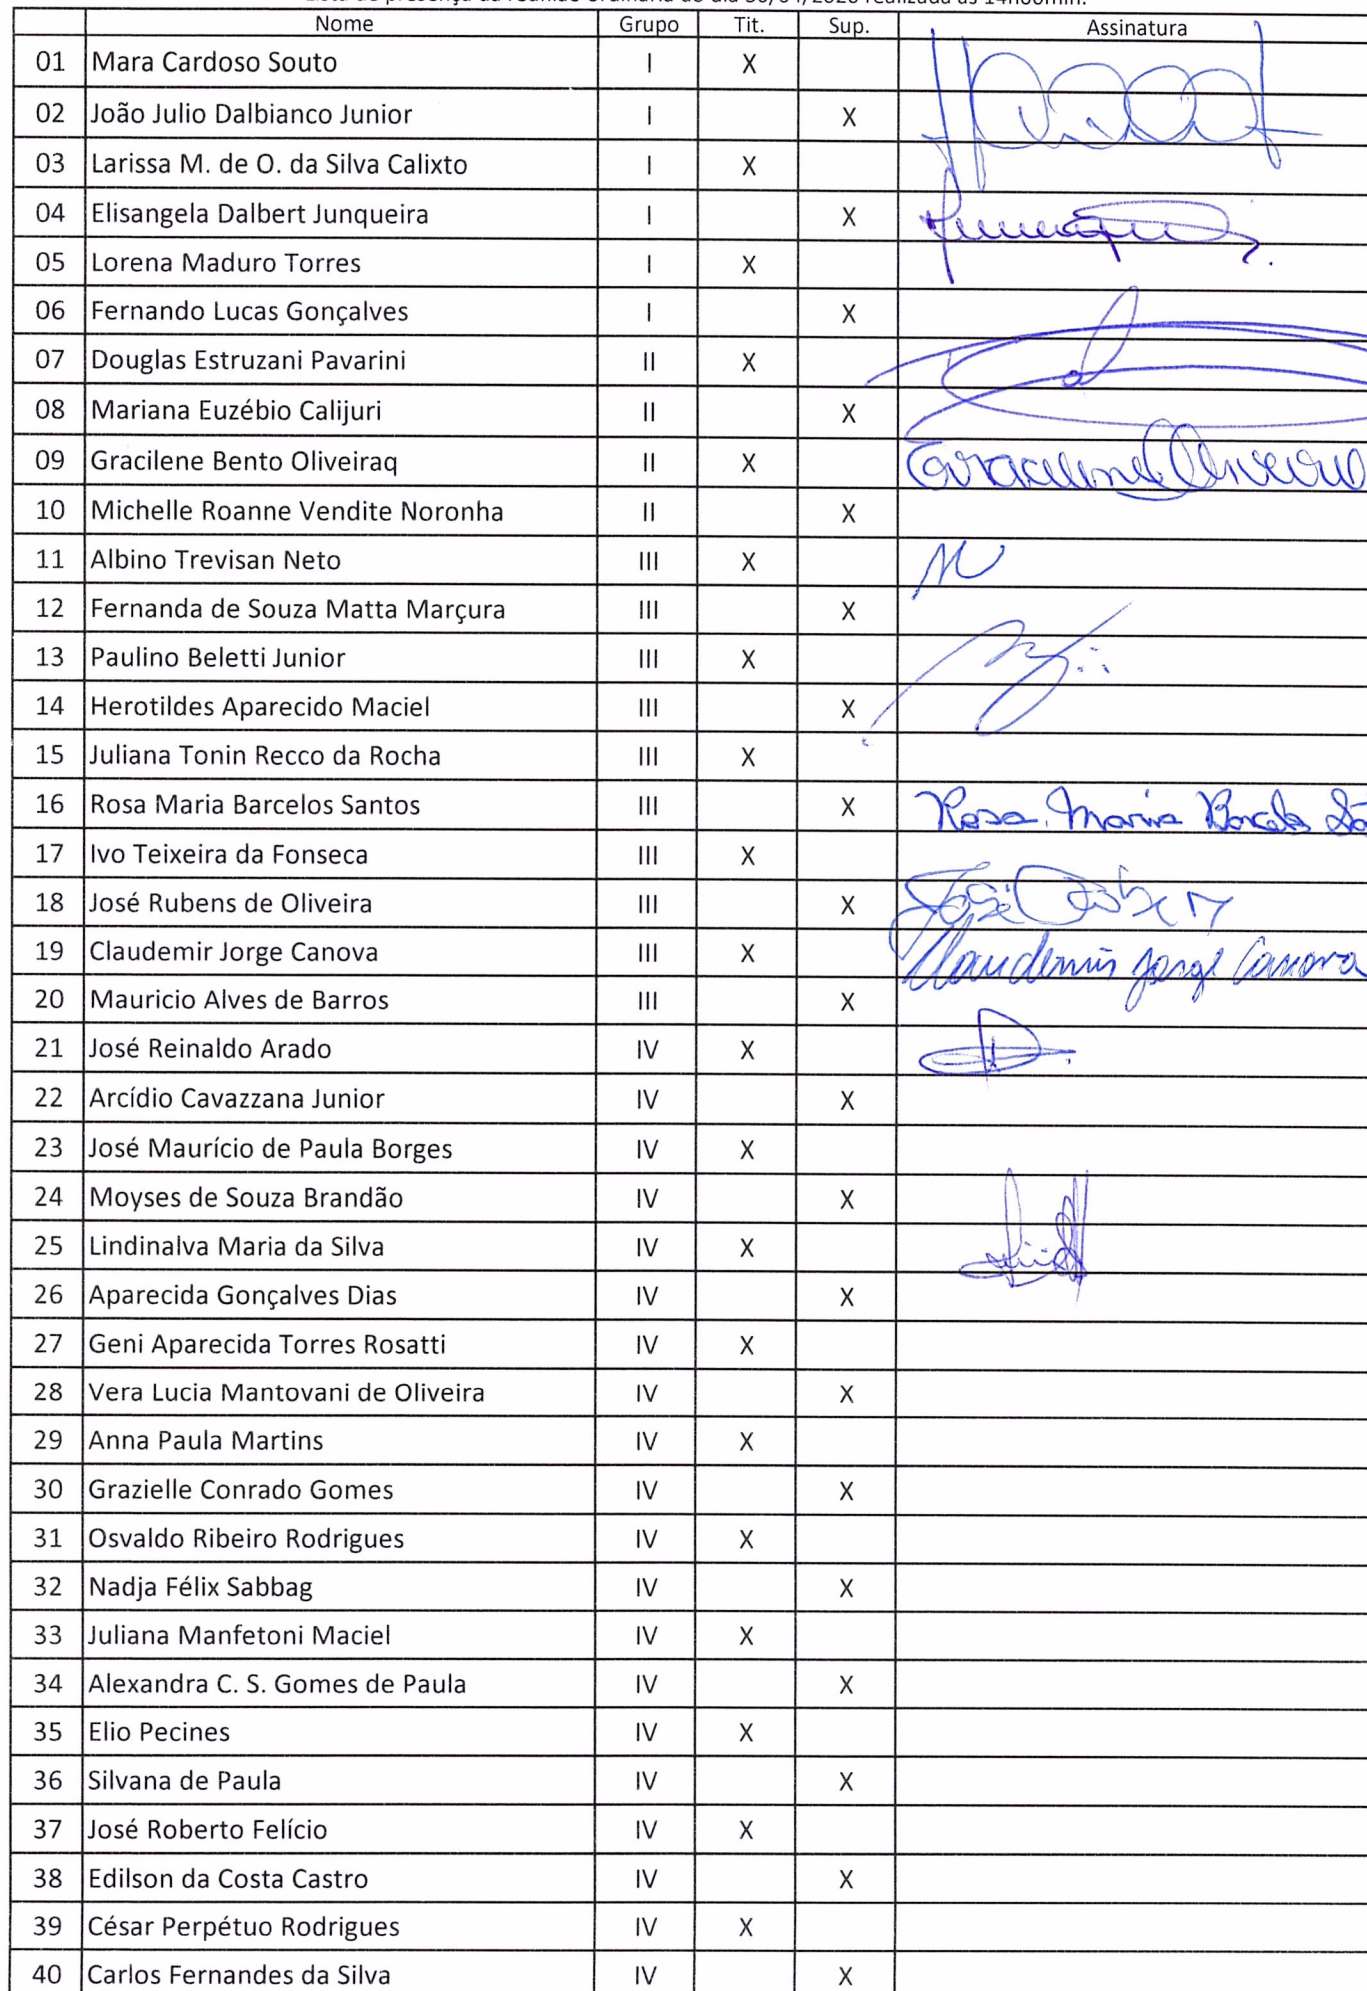 Lista de presença da reunião ordinária do dia 30/04/2020 realizada às 14h00min.
Nome Grupo Tit. Sup. Assinatura
01 Mara Cardoso Souto I X
02 João Julio Dalbianco Junior I X
03 Larissa M. de O. da Silva Calixto I X
04 Elisangela Dalbert Junqueira I X
05 Lorena Maduro Torres I X
06 Fernando Lucas Gonçalves I X
07 Douglas Estruzani Pavarini II X
08 Mariana Euzébio Calijuri II X
09 Gracilene Bento Oliveiraq II X Gracilene Oliveira
10 Michelle Roanne Vendite Noronha II X
11 Albino Trevisan Neto III X
12 Fernanda de Souza Matta Marçura III X
13 Paulino Beletti Junior III X
14 Herotildes Aparecido Maciel III X
15 Juliana Tonin Recco da Rocha III X
16 Rosa Maria Barcelos Santos III X Rosa Maria Barcelos
17 Ivo Teixeira da Fonseca III X
18 José Rubens de Oliveira III X José
19 Claudemir Jorge Canova III X Claudemir Jorge Canova
20 Mauricio Alves de Barros III X
21 José Reinaldo Arado IV X
22 Arcídio Cavazzana Junior IV X
23 José Maurício de Paula Borges IV X
24 Moyses de Souza Brandão IV X
25 Lindinalva Maria da Silva IV X
26 Aparecida Gonçalves Dias IV X
27 Geni Aparecida Torres Rosatti IV X
28 Vera Lucia Mantovani de Oliveira IV X
29 Anna Paula Martins IV X
30 Grazielle Conrado Gomes IV X
31 Osvaldo Ribeiro Rodrigues IV X
32 Nadja Félix Sabbag IV X
33 Juliana Manfetoni Maciel IV X
34 Alexandra C. S. Gomes de Paula IV X
35 Elio Pecines IV X
36 Silvana de Paula IV X
37 José Roberto Felício IV X
38 Edilson da Costa Castro IV X
39 César Perpétuo Rodrigues IV X
40 Carlos Fernandes da Silva IV X